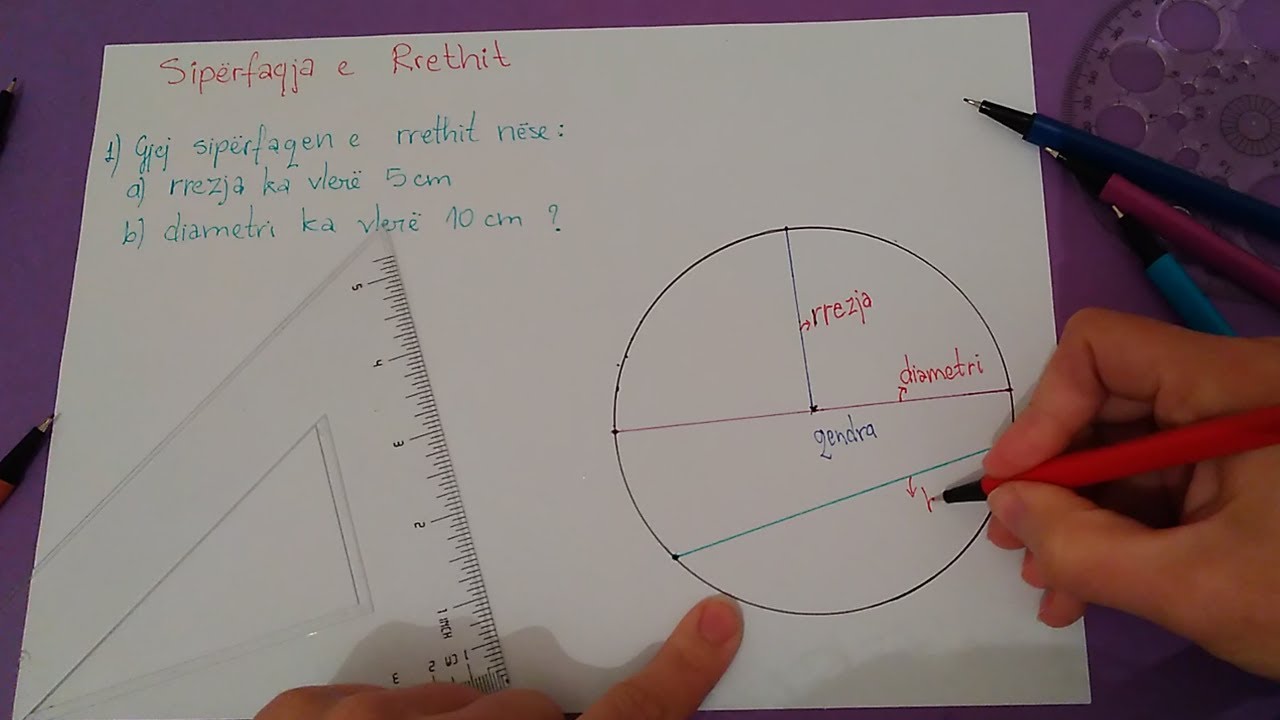 Sipërfaqja e Rrethit
1) Gjej sipërfaqen e rrethit nëse:
a) rrezja ka vlerë 5 cm
b) diametri ka vlerë 10 cm ?
rrezja
diametri
qendra
5
4
3
2
1 INCH
CM 1
2
3